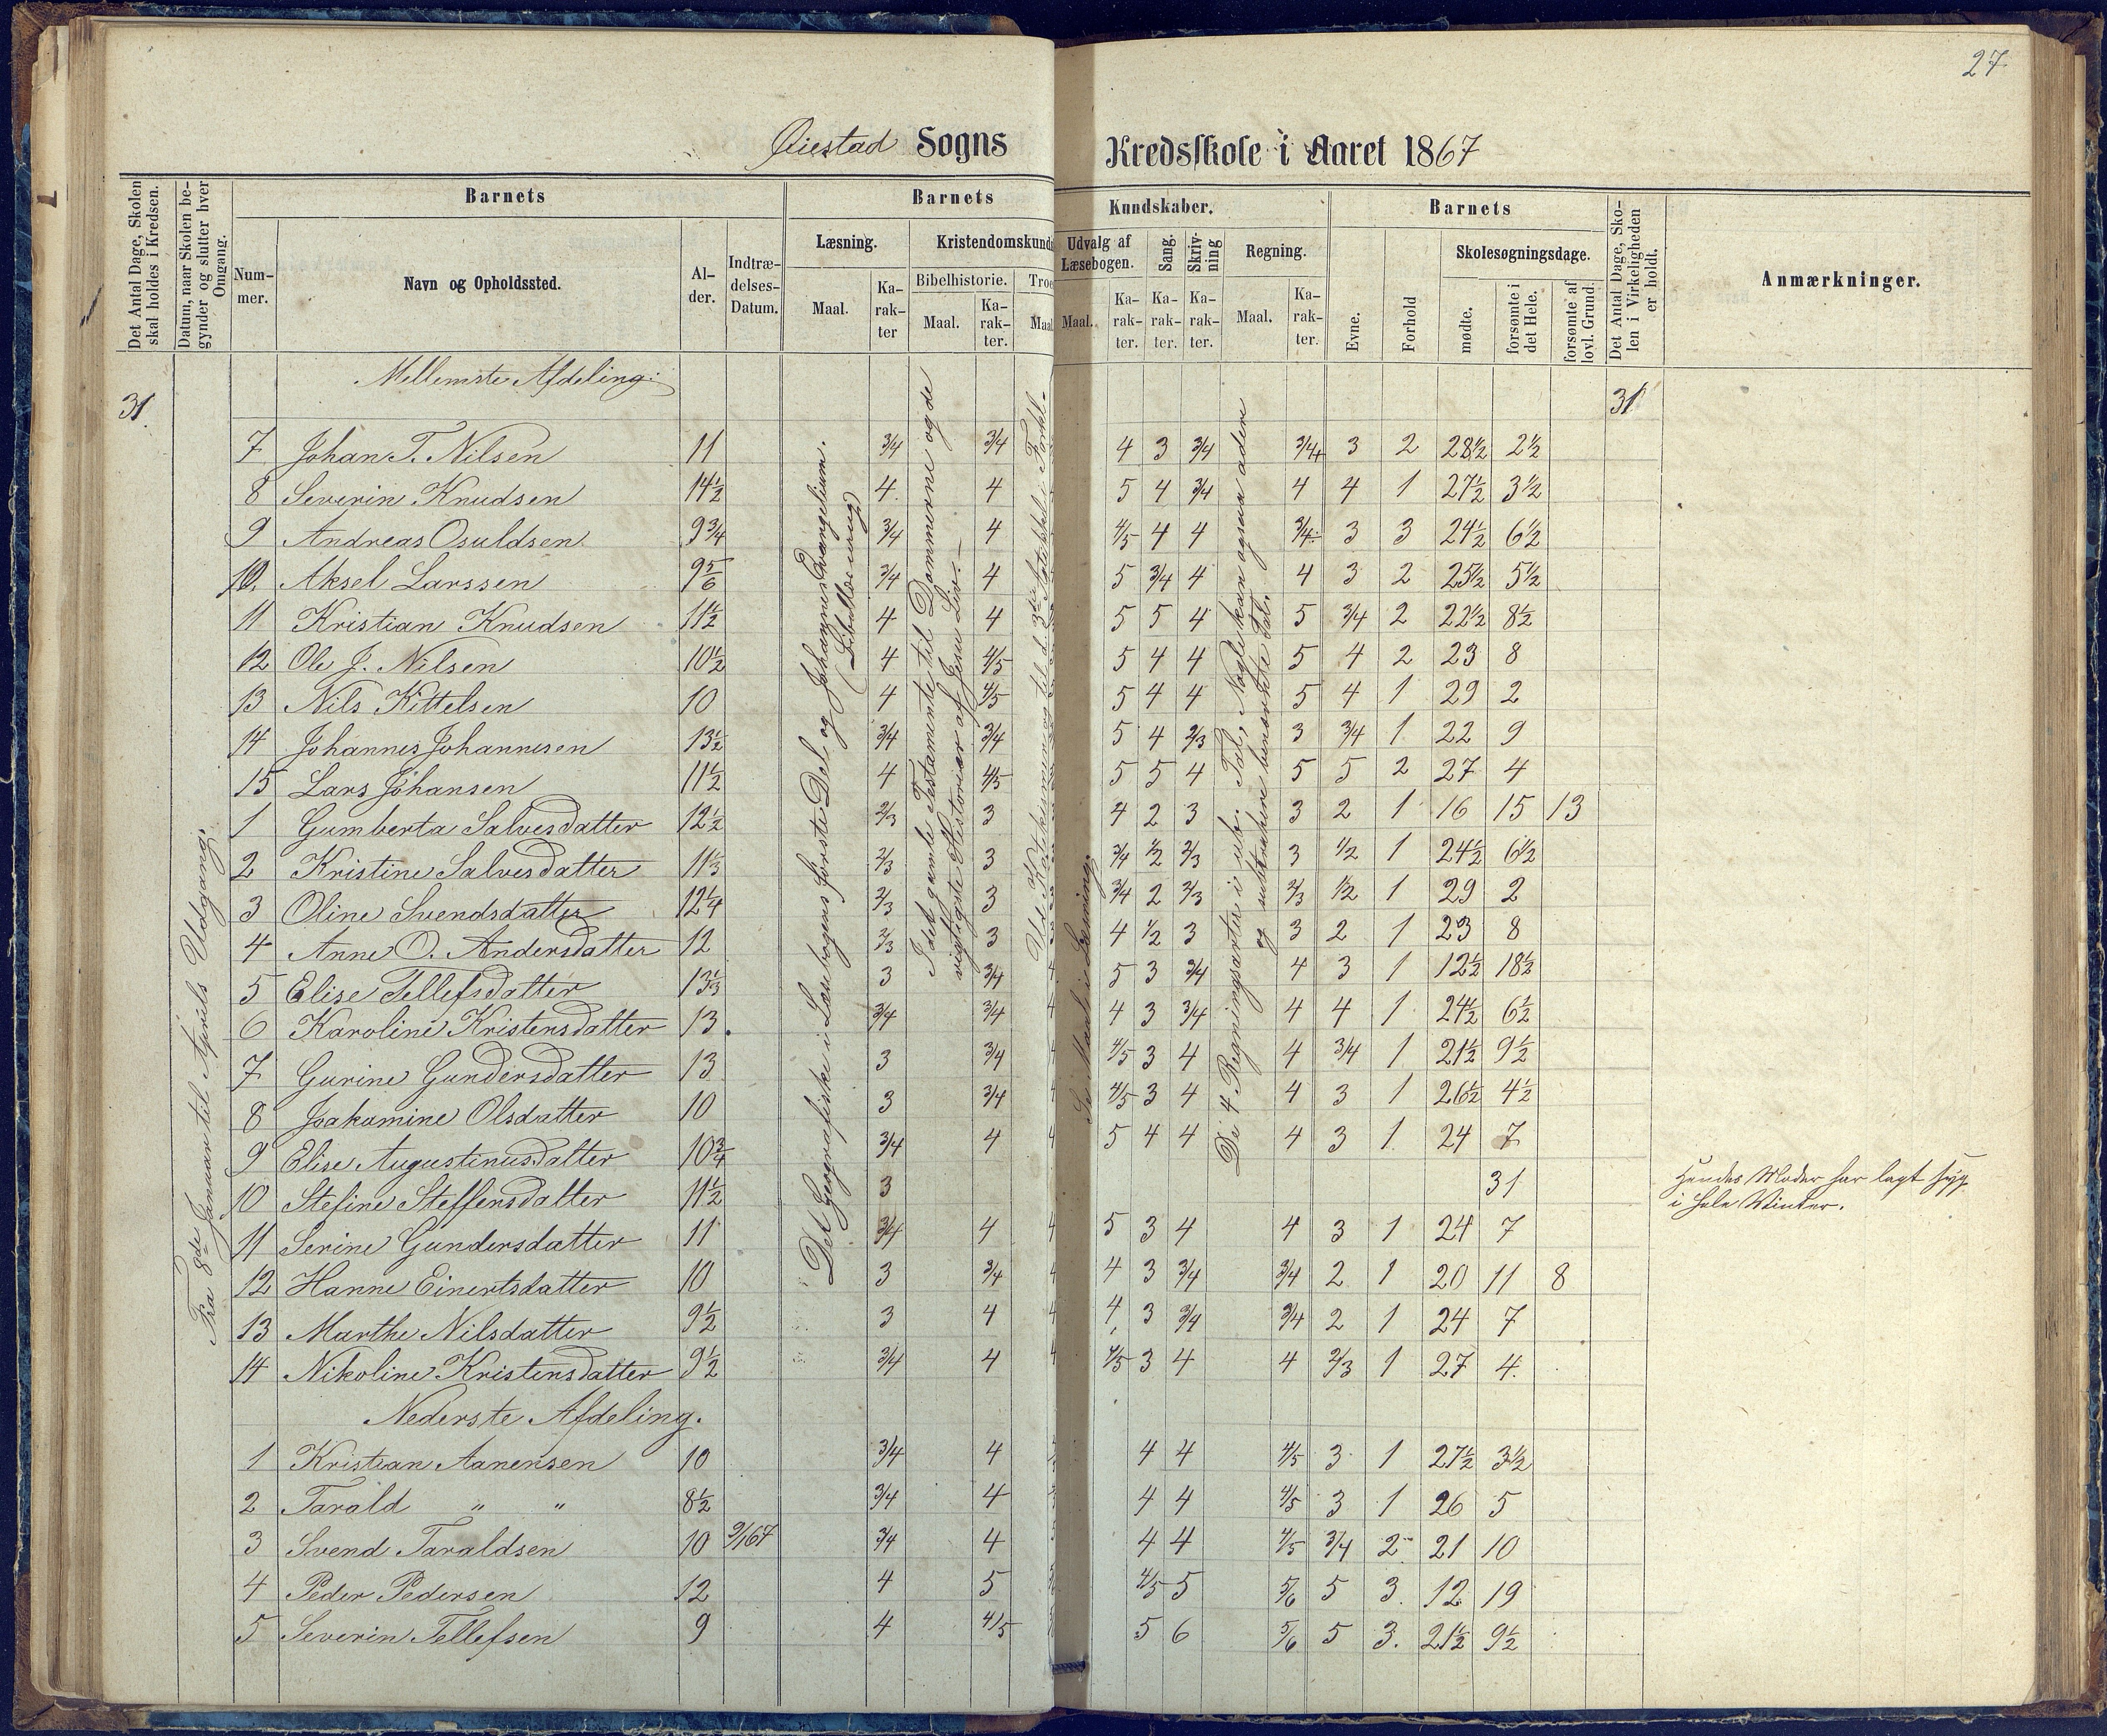 27
Øiestad Sogns Kredsskole i Aaret 1867
Det Antal Dage, Skolen skal holdes i Kredsen.
Datum, naar Skolen begynder og slutter hver Omgang.
Barnets
Nummer.
Navn og Opholdssted.
Alder.
Indtrædelses-Datum.
Barnets Kundskaber.
Læsning.
Maal.
Karakter
Kristendomskund
Bibelhistorie.
Maal.
Karakter.
Troe
Maal
Udvalg af Læsebogen.
Maal.
Karakter.
Sang.
Karakter.
Skrivning
Karakter.
Regning.
Maal.
Karakter.
Barnets
Evne.
Forhold
Skolesøgningsdage.
mødte.
forsømte i det Hele.
forsømte af lovl. Grund.
Det Antal Dage, Skolen i Virkeligheden er holdt.
Anmærkninger.
Mellemste Afdeling:
31. 31
Fra 8de Januar til Aprils Udgang.
Det Geografiske i Læsebogens første Del og Johannes Evangelium.
(Bibellæsning)
I det gamle Testamente til Dommerne og de
vigtigste Historier af Jesu Liv.
Se Maal i Læsning.
De 4 Regningsarter i ub. Tal, Nogle kan ogsaa adere
og subtrahere benævnte Tal.
7 Johan T. Nilsen 11 3/4 3/4 4 3 3/4 3/4+ 3 2 28½ 2½
8 Severin Knudsen 14½ 4 4 5 4 3/4 4 4 1 27½ 3½
9 Andreas Osuldsen 9¾ 3/4 4 4/5 4 4 3/4÷ 3 3 24½ 6½
10. Aksel Larssen 9 5/6 3/4 4 5 3/4 4 4 3 2 25½ 5½
11 Kristian Knudsen 11½ 4 4 5 5 4 5 3/4 2 22½ 8½
12 Ole J. Nilsen 10½ 4 4/5 5 4 4 5 4 2 23 8
13 Nils Kittelsen 10 4 4/5 5 4 4 5 4 1 29 2
14 Johannes Johannesen 13½ 3/4 3/4 5 4 2/3 3 3/4 1 22 9
15 Lars Johansen 11½ 4 4/5 5 5 4 5 5 2 27 4
1 Gumberta Salvesdatter 12½ 2/3 3 4 2 3 3 2 1 16 15 13
2 Kristine Salvesdatter 11⅓ 2/3 3 3/4 1/2 2/3 3 1/2 1 24½ 6½
3 Oline Svendsdatter 12¼ 2/3 3 3/4 2 2/3 2/3 1/2 1 29 2
4 Anne O. Andersdatter 12 2/3 3 4 1/2 3 3 2 1 23 8
5 Elise Tellefsdatter 13⅓ 3 3/4 5 3 3/4 4 3 1 12½ 18½
6 Karoline Kristensdatter 13. 3/4 3/4 4 3 3/4 4 4 1 24½ 6½
7 Gurine Gundersdatter 13 3 3/4 4/5 3 4 4 3/4 1 21½ 9½
8 Joakumine Olsdatter 10 3 3/4 4/5 3 4 4 3 1 26½ 4½
9 Elise Augustinusdatter 10¾ 3/4 4 5 4 4 4 3 1 24 7
10 Stefine Steffensdatter 11½ 3 31 Hendes Moder har lagt syg
i hele Winter.
11 Serine Gundersdatter 11 3/4 4 5 3 4 4 3 1 24 7
12 Hanne Einertsdatter 10 3 3/4 4 3 3/4 3/4 2 1 20 11 8
13 Marthe Nilsdatter 9½ 3 4 4 3 3/4 3/4 2 1 24 7
14 Nikoline Kristensdatter 9½ 3/4 4 4/5 3 4 4 2/3 1 27 4.
Nederste Afdeling.
1 Kristian Aanensen 10 3/4 4 4 4 4/5 3 1 27½ 3½
2 Tarald " " 8½ 3/4 4 4 4 4/5 3 1 26 5
3 Svend Taraldsen 10 9/1 67 3/4 4 4 4 4/5 3/4 2 21 10
4 Peder Pedersen 12 4 5 4/5 5 5/6 5 3. 12 19
5 Severin Tellefsen 9 4 4/5 5 6 5/6 5 3. 21½ 9½